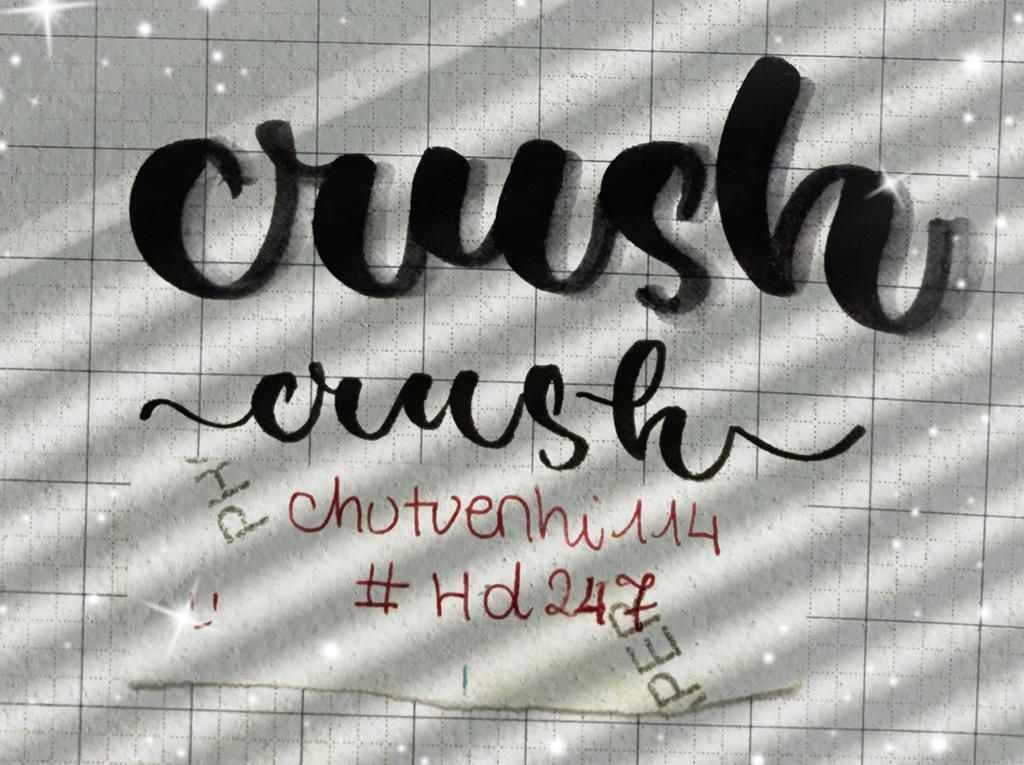 crush
crush
chutuenhi114
# Hd 247